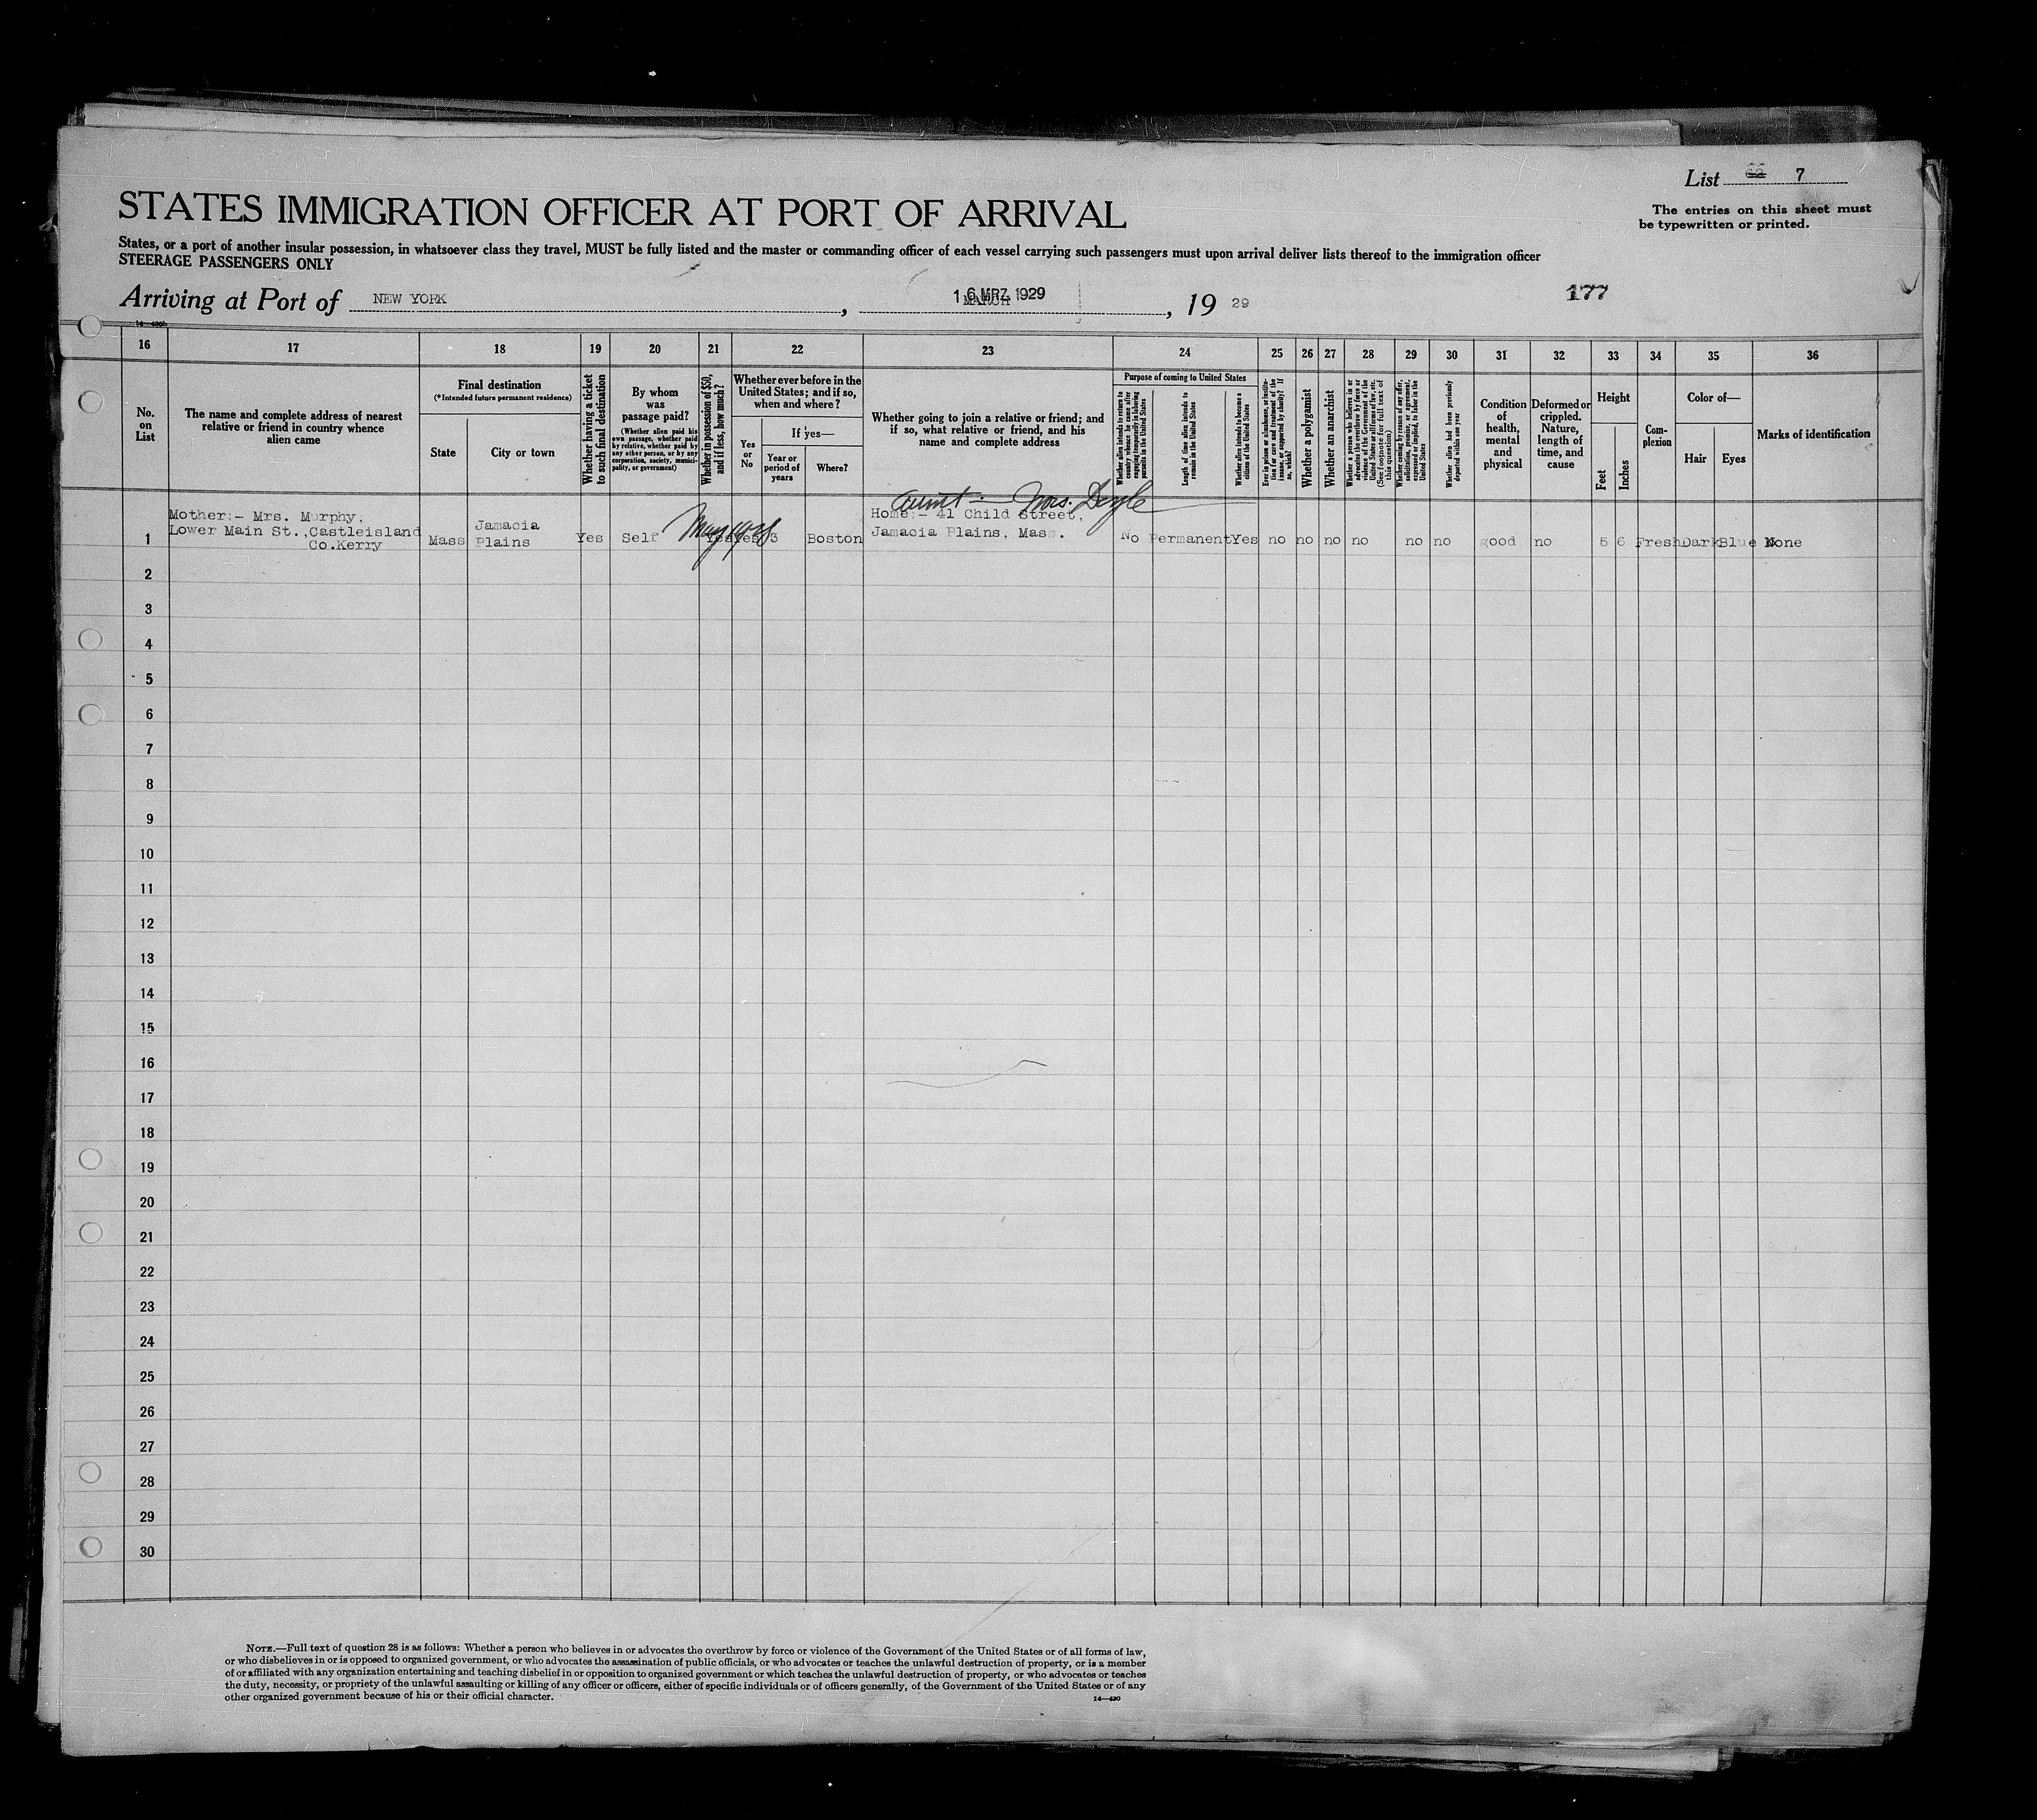 List 62 7
The entries on this sheet must
be typewritten or printed.
STATES IMMIGRATION OFFICER AT PORT OF ARRIVAL
States, or a port of another insular possession, in whatsoever class they travel, MUST be fully listed and the master or commanding officer of each vessel carrying such passengers must upon arrival deliver lists thereof to the immigration officer
STEERAGE PASSENGERS ONLY
Arriving at Port of NEW YORK, MARCH 16 MRZ 1929, 19 29
177
16 17 18 19 20 21 22 23 24 25 26 27 28 29 30 31 32 33 34 35 36
No. on List
The name and complete address of nearest relative or friend in country whence alien came
Final destination
(*Intended future permanent residence)
State
City or town
Whether having a ticket to such final destination
By whom was passage paid?
(Whether alien paid his own passage, whether paid by relative, whether paid by any other person, or by any corporation, society, municipality, or government)
Whether in possession of $50, and if less, how much?
Whether ever before in the United States; and if so, when and where?
Yes or No
If yes—
Year or period of years
Where?
Whether going to join a relative or friend; and if so, what relative or friend, and his name and complete address
Purpose of coming to United States
Whether alien intends to return to country whence he came after engaging temporarily in laboring pursuits in the United States
Length of time alien intends to remain in the United States
Whether alien intends to become a citizen of the United States
Ever in prison or almshouse, or institution for care and treatment of the insane, or supported by charity? If so, which?
Whether a polygamist
Whether an anarchist
Whether a person who believes in or advocates the overthrow by force or violence of the Government of the United States or all forms of law, etc. (See footnote for full text of this question)
Whether coming by reason of any offer, solicitation, promise, or agreement, expressed or implied, to labor in the United States
Whether alien had been previously deported within one year
Condition of health, mental and physical
Deformed or crippled. Nature, length of time, and cause
Height
Feet
Inches
Complexion
Color of—
Hair
Eyes
Marks of identification
Aunt - Mrs. Doyle
Mother:- Mrs. Murphy,
Lower Main St., Castleisland
Co.Kerry
1 Mass Jamacia Plains Yes Self May 1928 Yes 3 Boston
Home:- 41 Child Street,
Jamacia Plains, Mass.
No Permanent Yes no no no no no no good no 5 6 Fresh Dark Blue None
2
3
4
5
6
7
8
9
10
11
12
13
14
15
16
17
18
19
20
21
22
23
24
25
26
27
28
29
30
NOTE.—Full text of question 28 is as follows: Whether a person who believes in or advocates the overthrow by force or violence of the Government of the United States or of all forms of law,
or who disbelieves in or is opposed to organized government, or who advocates the assassination of public officials, or who advocates or teaches the unlawful destruction of property, or is a member
of or affiliated with any organization entertaining and teaching disbelief in or opposition to organized government or which teaches the unlawful destruction of property, or who advocates or teaches
the duty, necessity, or propriety of the unlawful assaulting or killing of any officer or officers, either of specific individuals or of officers generally, of the Government of the United States or of any
other organized government because of his or their official character.
14—430